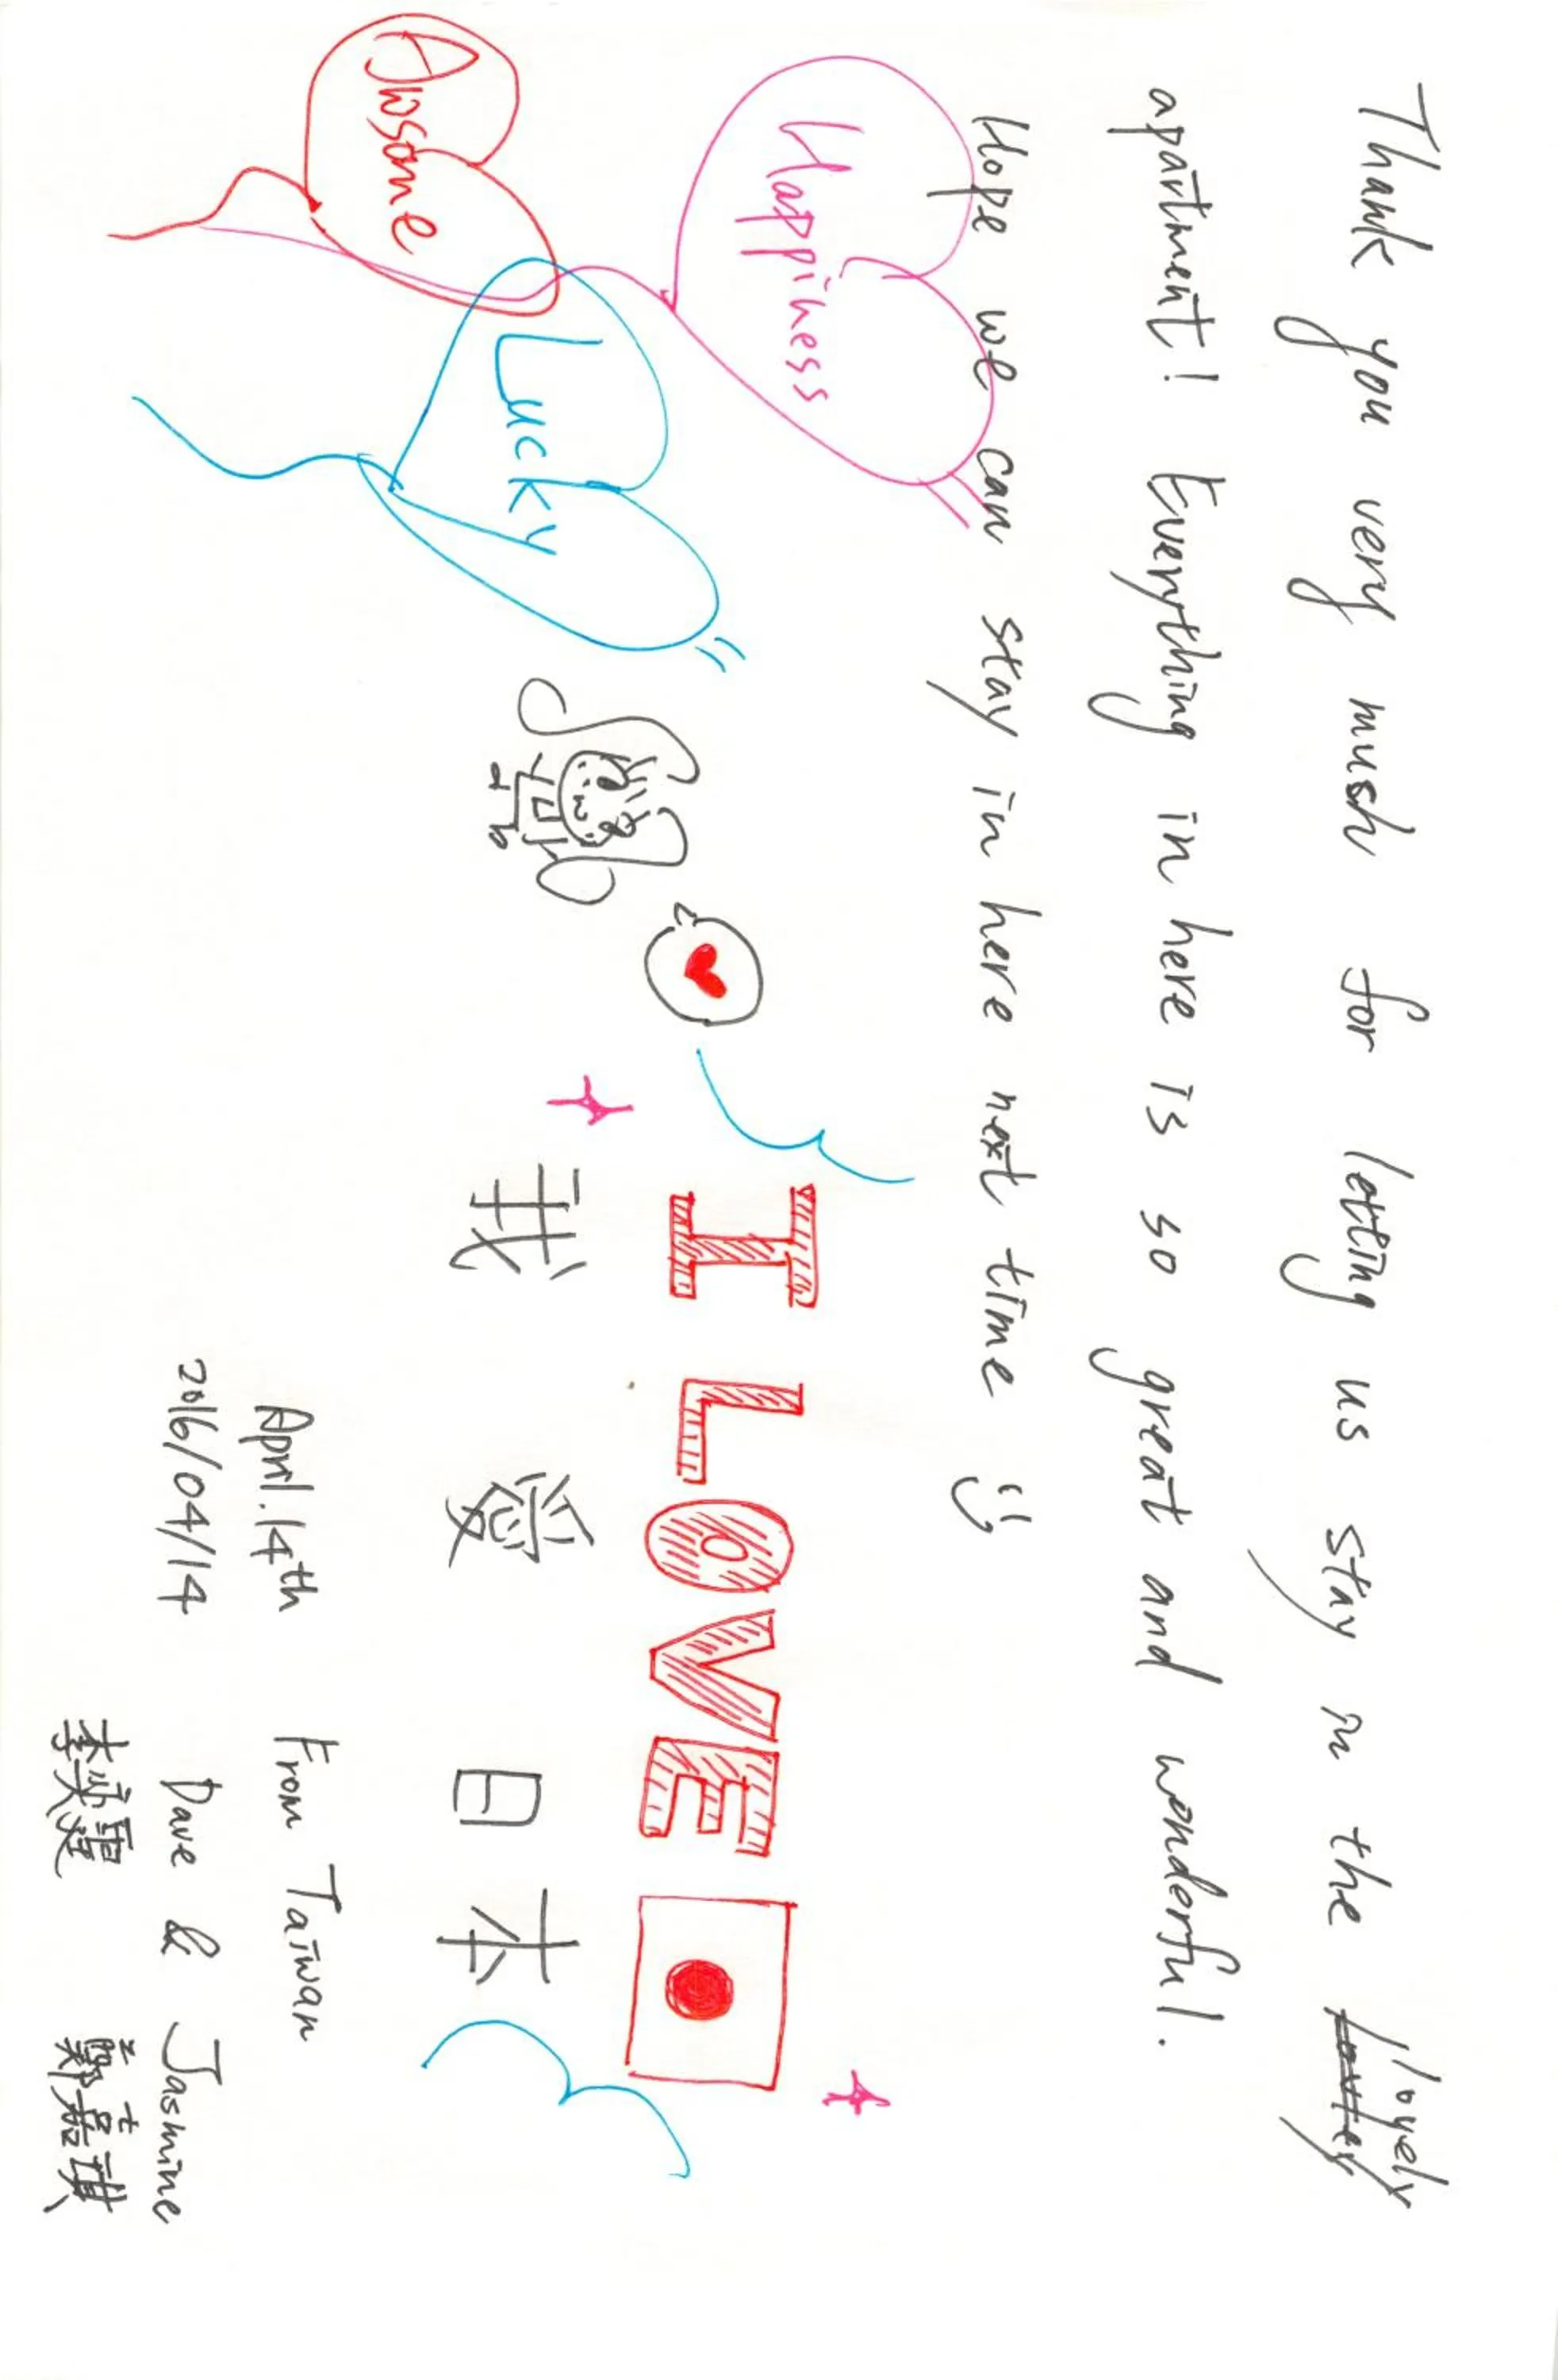 Thank you very mush for letting us stay in the lovely
apartment! Everything in here is so great and wonderful.
Hope we can stay in here next time :)
Happiness
Awsome
Lucky
I LOVE
我 愛 日 本
April.14th
2016/04/14
From Taiwan
Dave & Jasmine
鄭嘉琪